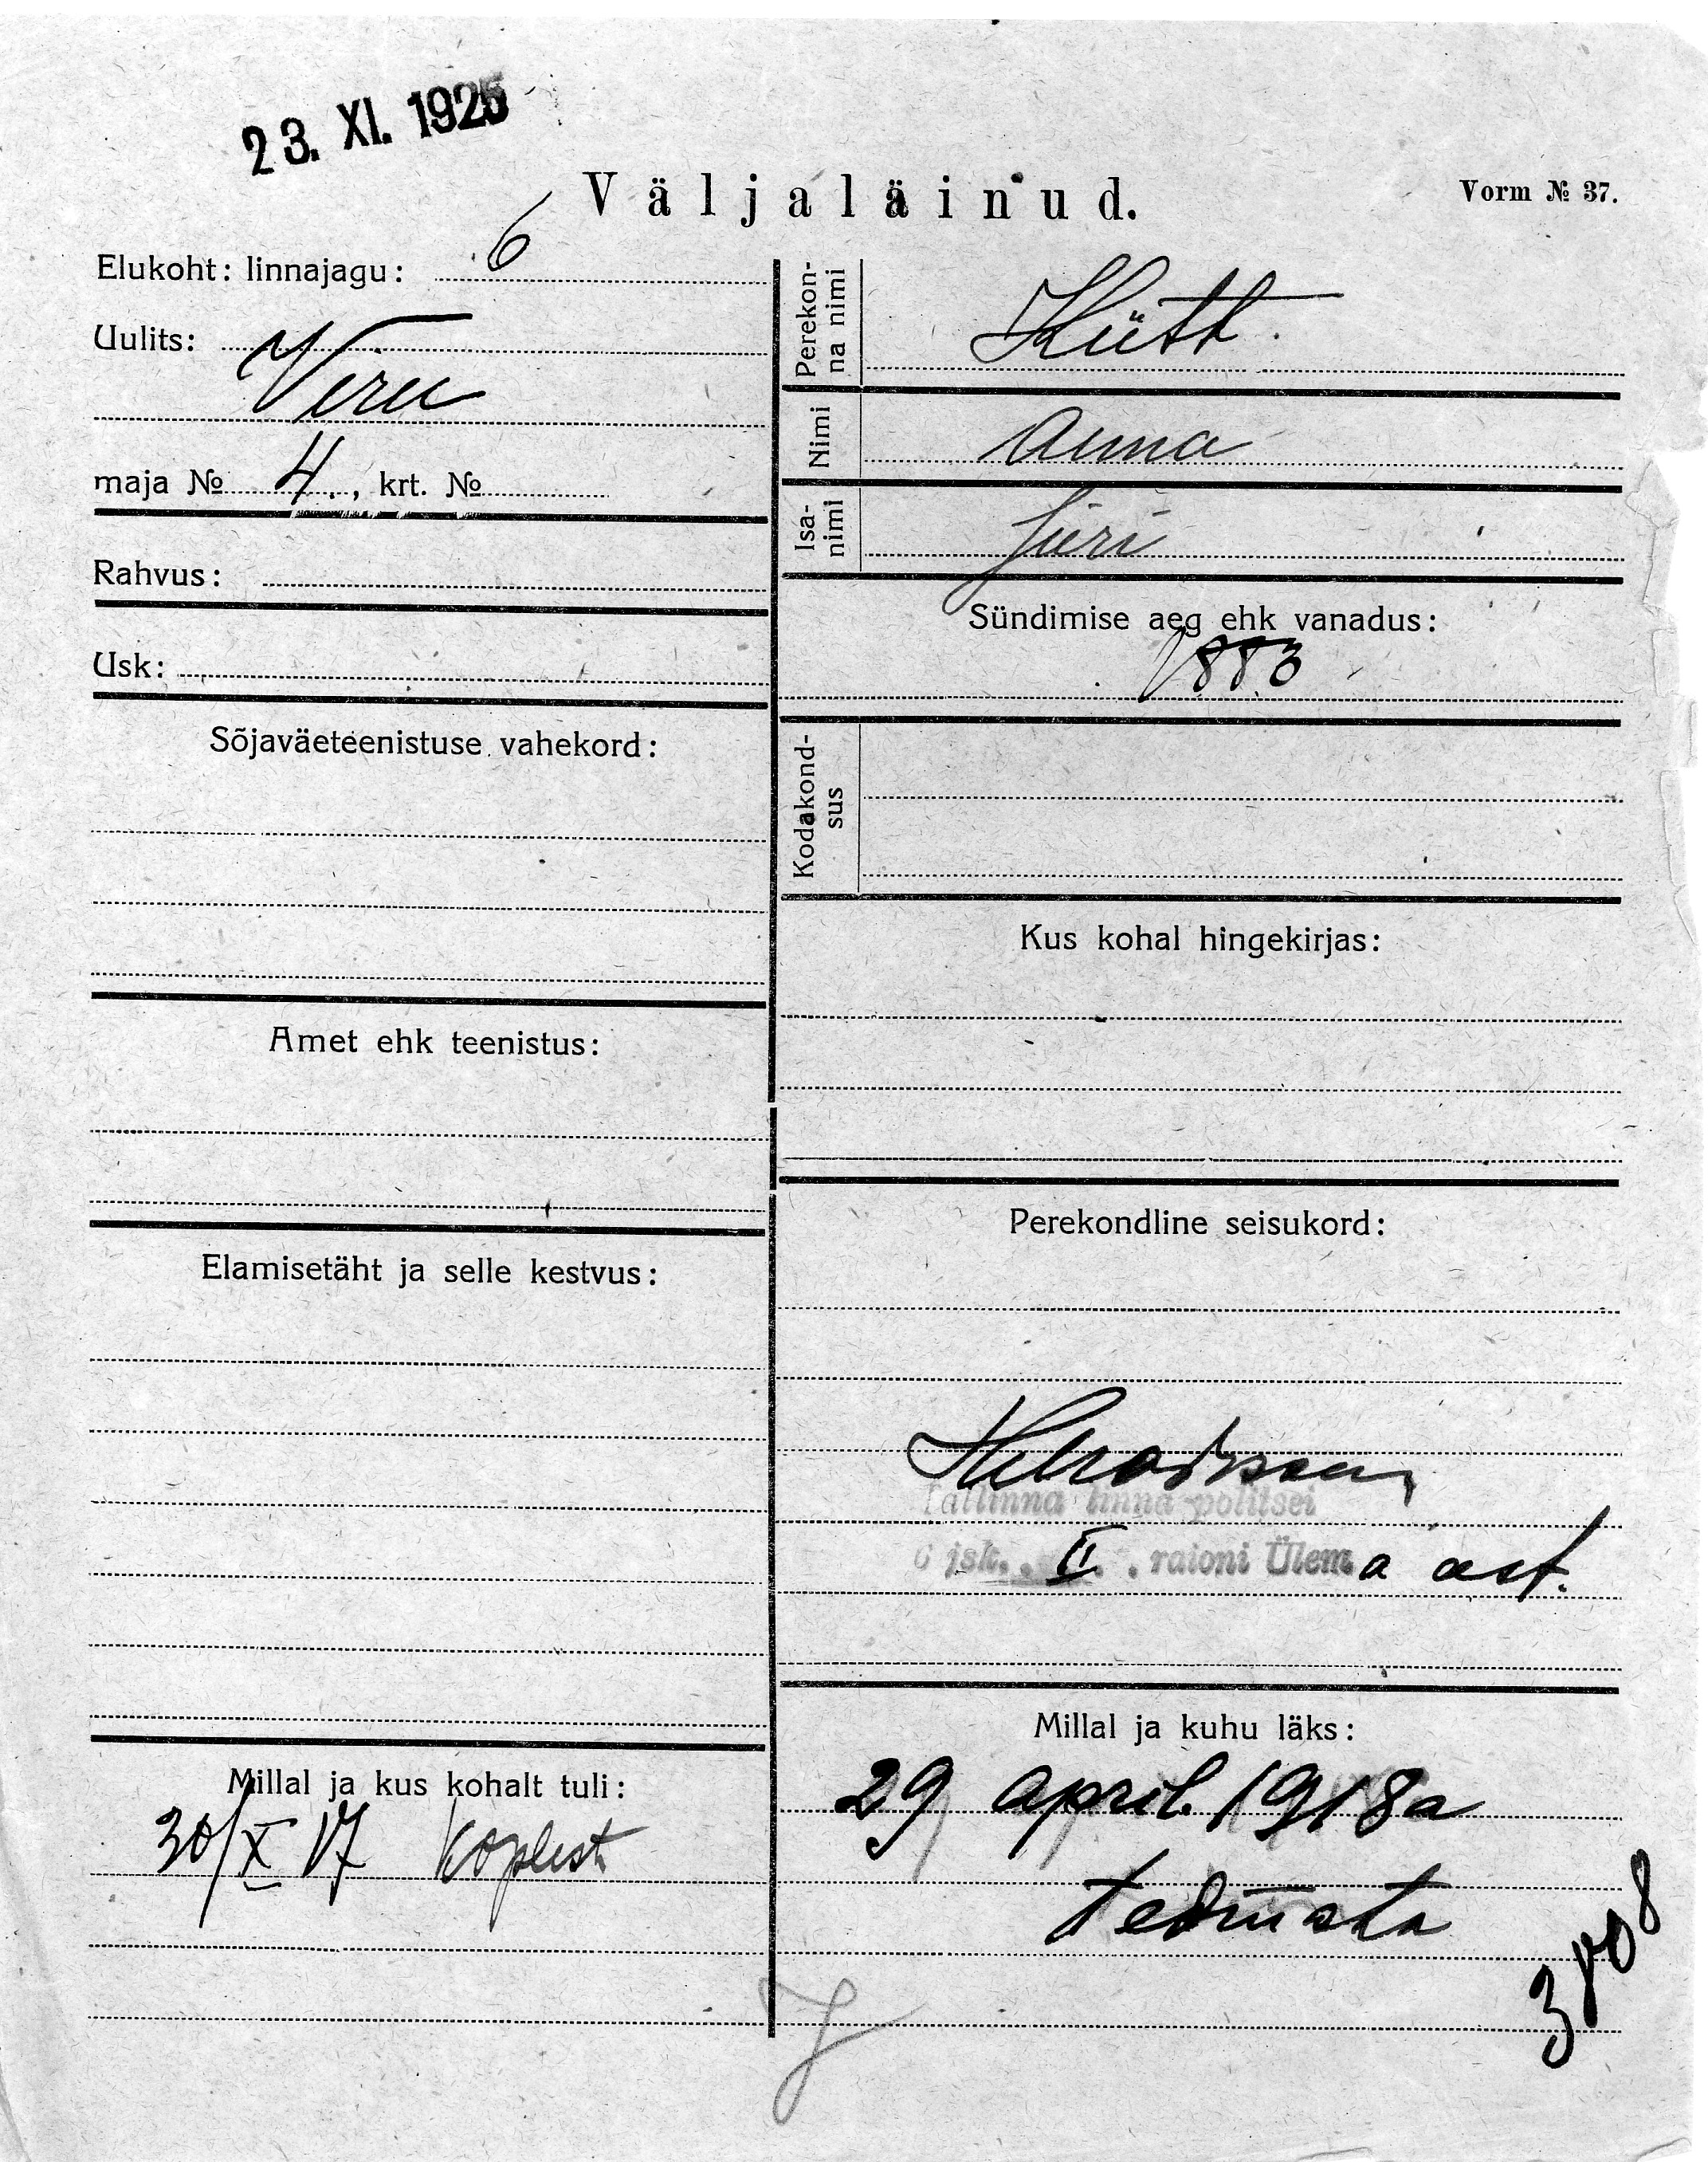 23. XI. 1925
Väljaläinud.
Vorm № 37.
Elukoht: linnajagu: 6
Uulits: Viru
maja № 4., krt. №
Rahvus:
Usk:
Sõjaväeteenistuse vahekord:
Amet ehk teenistus:
Elamisetäht ja selle kestvus:
Millal ja kus kohalt tuli:
30/X 17 Koplist
Perekon-
na nimi
Hütt
Nimi
Anna
Isa-
nimi
Jüri
Sündimise aeg ehk vanadus:
1883
Kodakond-
sus
Kus kohal hingekirjas:
Perekondline seisukord:
Tallinna linna politsei
6 jsk. II raioni Ülema ast.
Millal ja kuhu läks:
29 april. 1918a
tedmata
3808